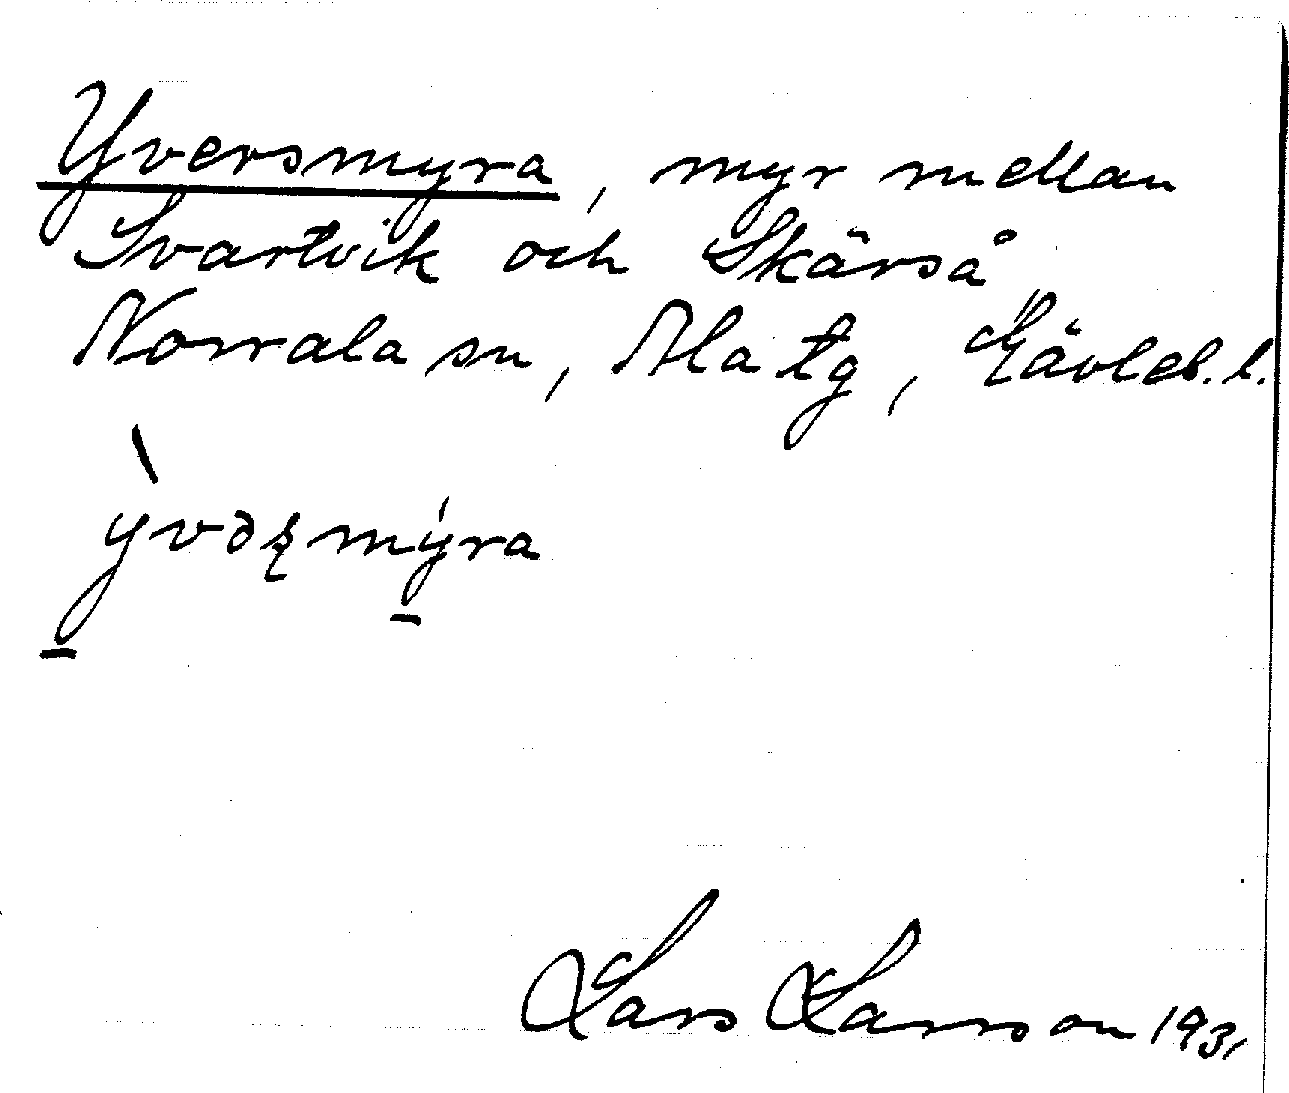 Yversmyra, myr mellan
Svartvik och Skärså,
Norrala sn, Ala tg, Gävleb. l.
ỳvəʂmýra
Lars Larsson 1931